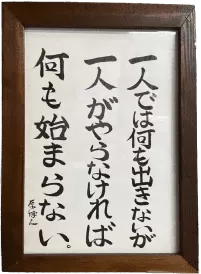 一人では何も出きないが
一人がやらなければ
何も始まらない。